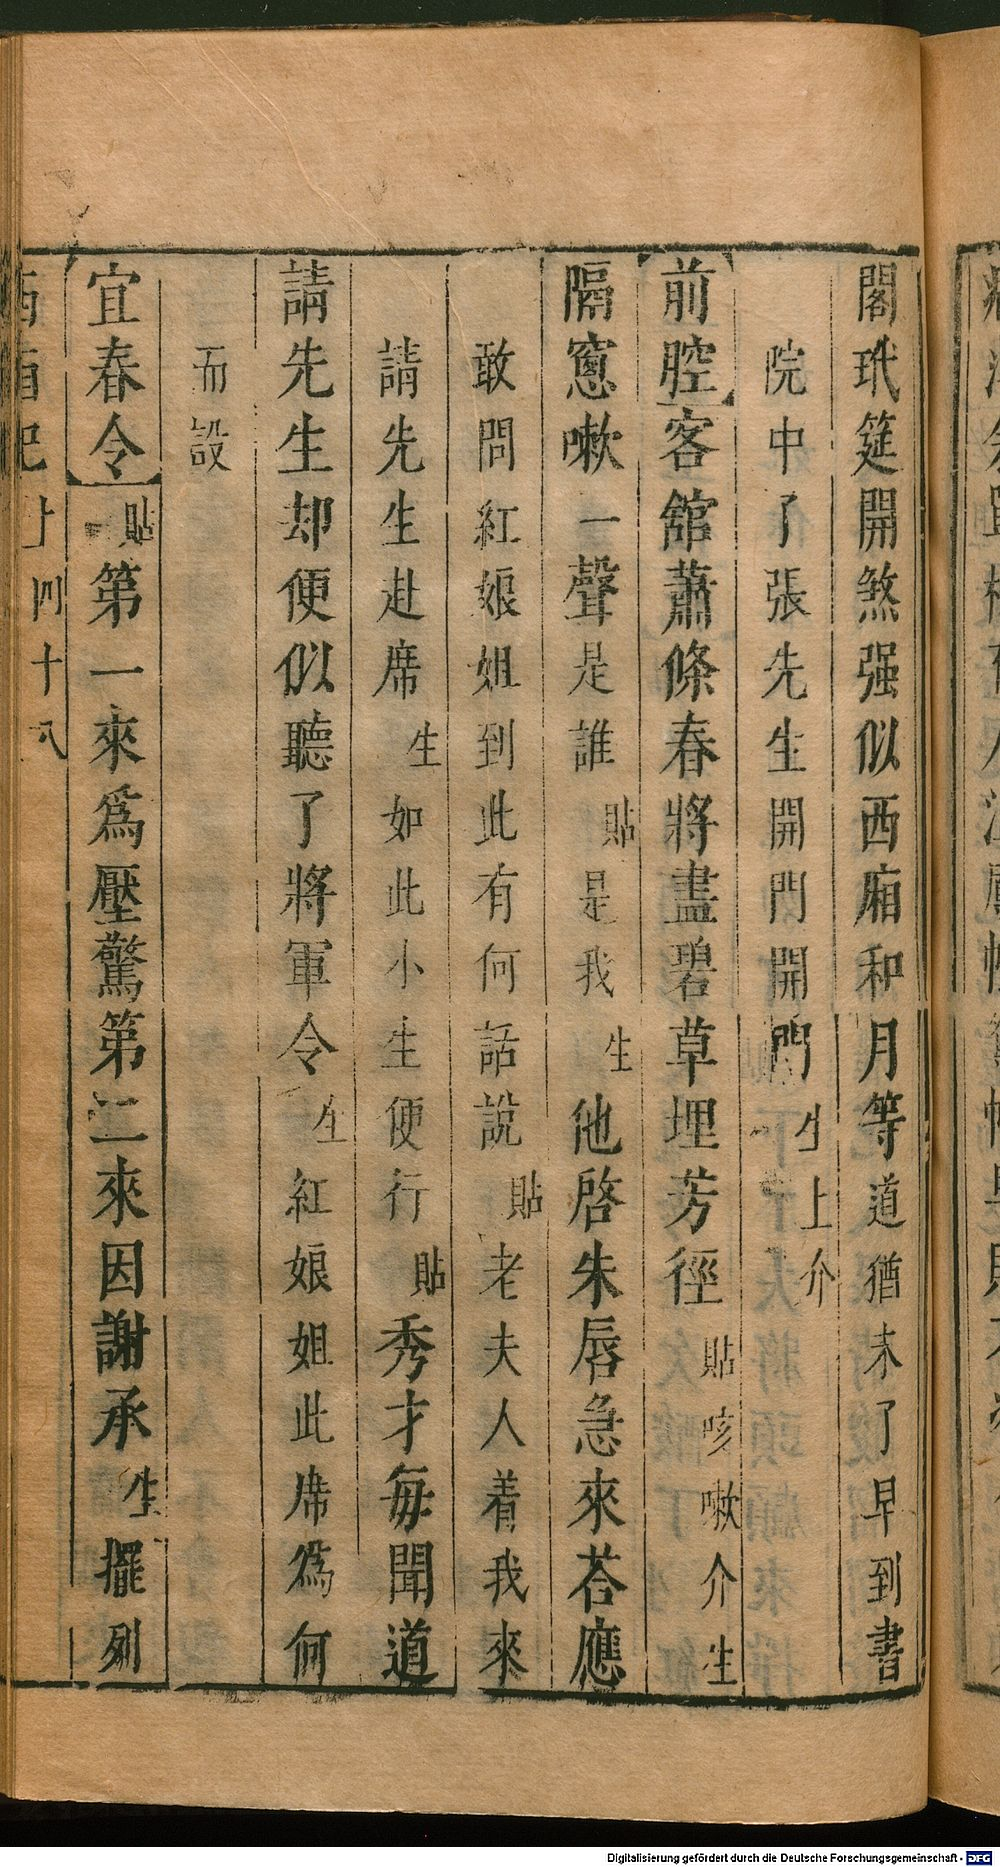 閣玳筵開煞强似西廂和月等道猶未了早到書
院中了張先生開門開門生上介
前腔客舘蕭條春將盡碧草埋芳徑貼咳嗽介生
隔窻嗽一聲是誰貼是我生他啓朱唇急來荅應
敢問紅娘姐到此有何話說貼老夫人着我來
請先生赴席生如此小生便行貼秀才每聞道
請先生却便似聽了將軍令生紅娘姐此席爲何
而設
宜春令貼第一來爲壓驚第二來因謝承生擺列
西廂記上四十八
Digitalisierung gefördert durch die Deutsche Forschungsgemeinschaft - DFG